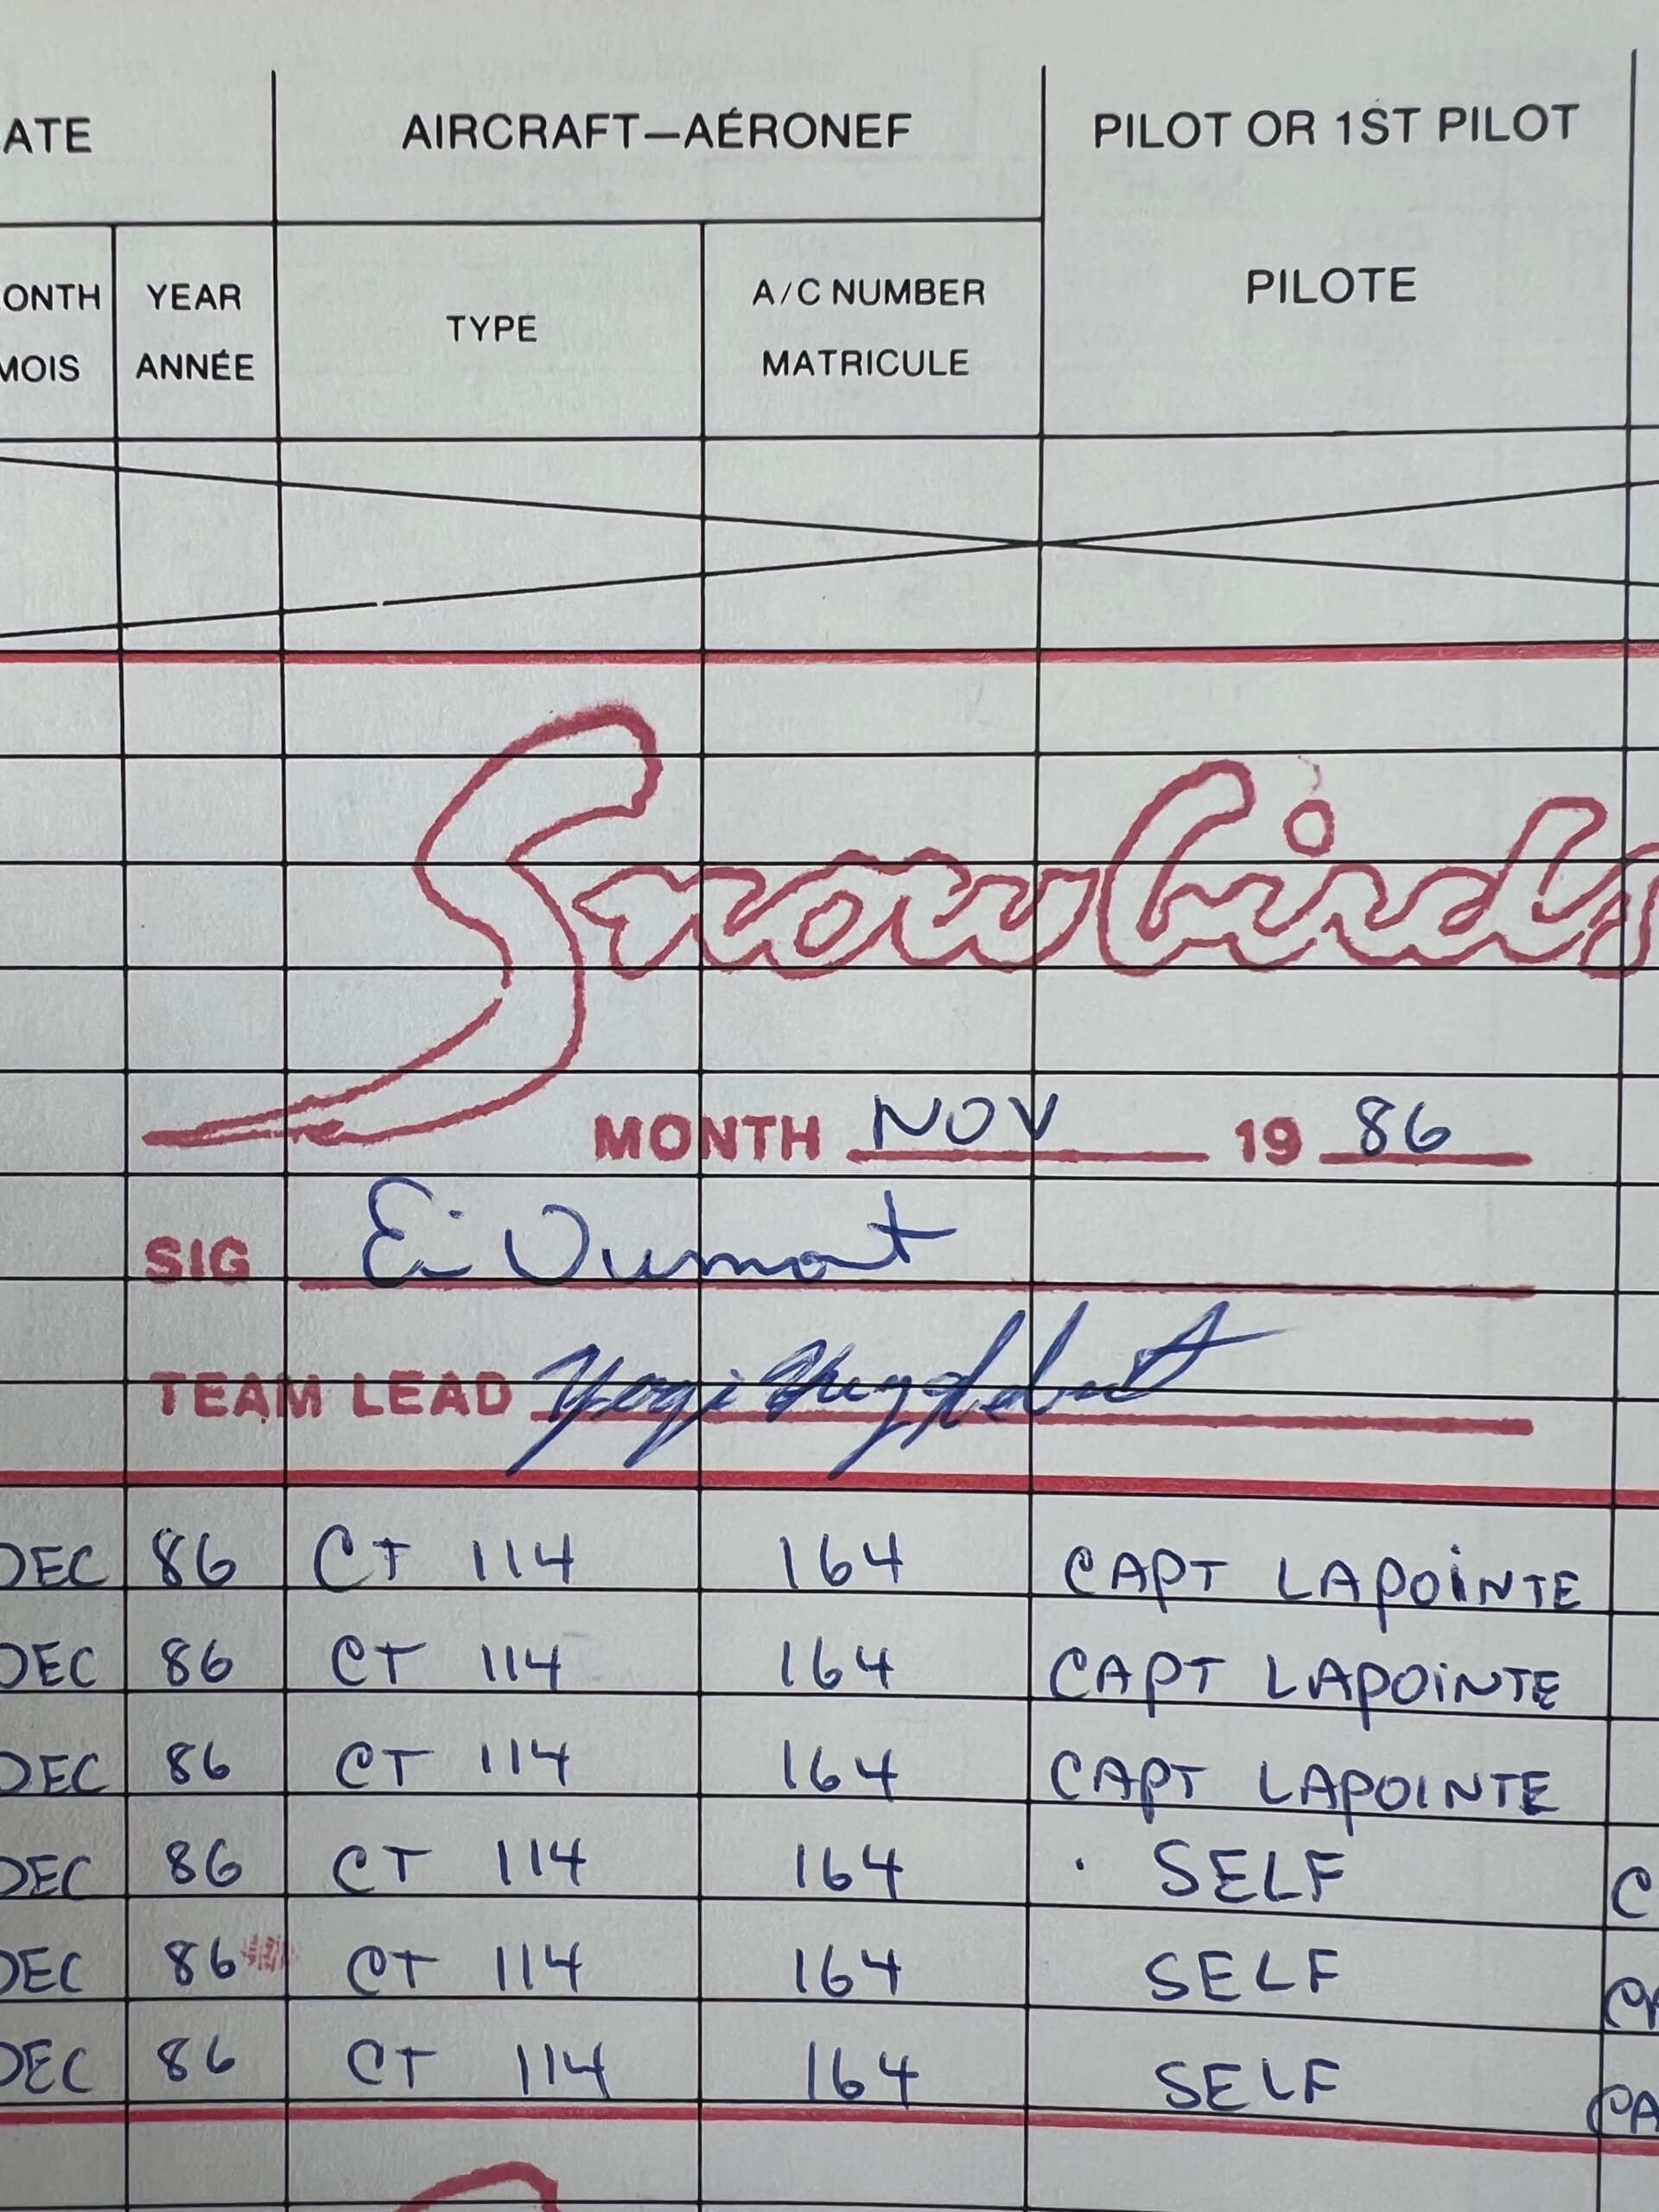 ATE AIRCRAFT—AÉRONEF PILOT OR 1ST PILOT
PILOTE
ONTH YEAR TYPE A/C NUMBER
MOIS ANNÉE MATRICULE
Snowbirds
MONTH NOV 19 86
SIG Dumont
TEAM LEAD Yogi
DEC 86 CT 114 164 CAPT LAPOINTE
DEC 86 CT 114 164 CAPT LAPOINTE
DEC 86 CT 114 164 CAPT LAPOINTE
DEC 86 CT 114 164 SELF C
DEC 86 CT 114 164 SELF
DEC 86 CT 114 164 SELF CA